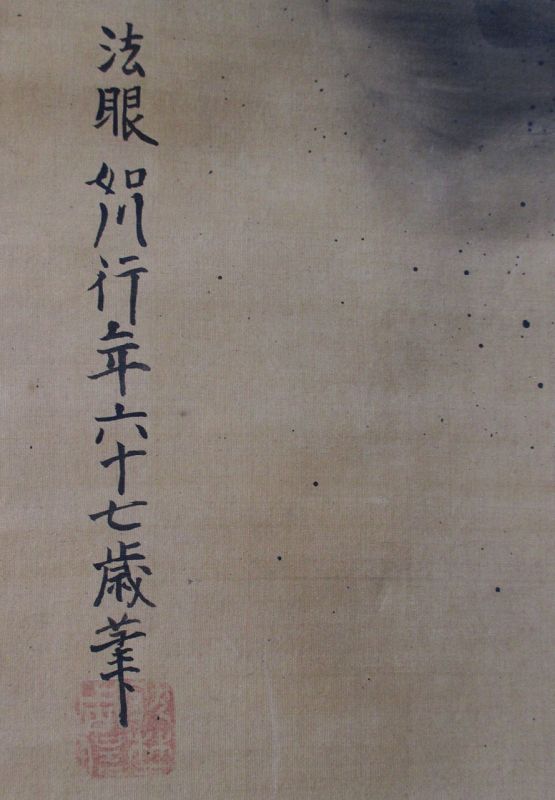 法眼如川行年六十七歳筆